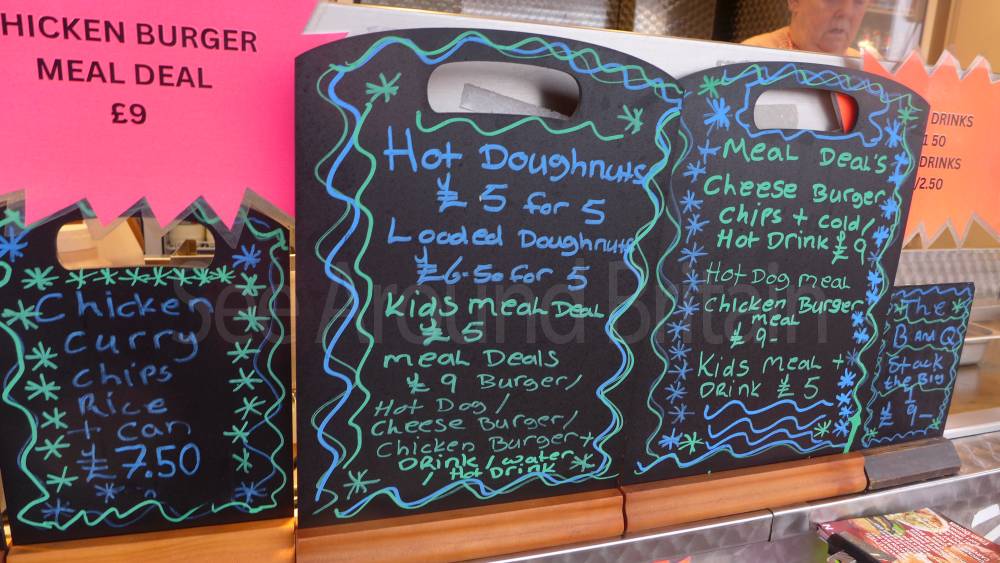 HICKEN BURGER
MEAL DEAL
£9
Chicken
Curry
chips
Rice
+ can
£7.50
Hot Doughnuts
£5 for 5
Loaded Doughnuts
£6.50 for 5
Kids meal Deal
£5
meal Deals
£9 Burger/
Hot Dog/
Cheese Burger/
Chicken Burger+
DRink/water
/Hot DRink
Meal Deal's
Cheese Burger
Chips + cold/
Hot Drink £9
Hot Dog meal
Chicken Burger
meal
£9-
Kids Meal +
DRink £5
DRINKS
1 50
DRINKS
/2.50
The
B and Q
Stack
the Big
1
£9-
See Around Britain